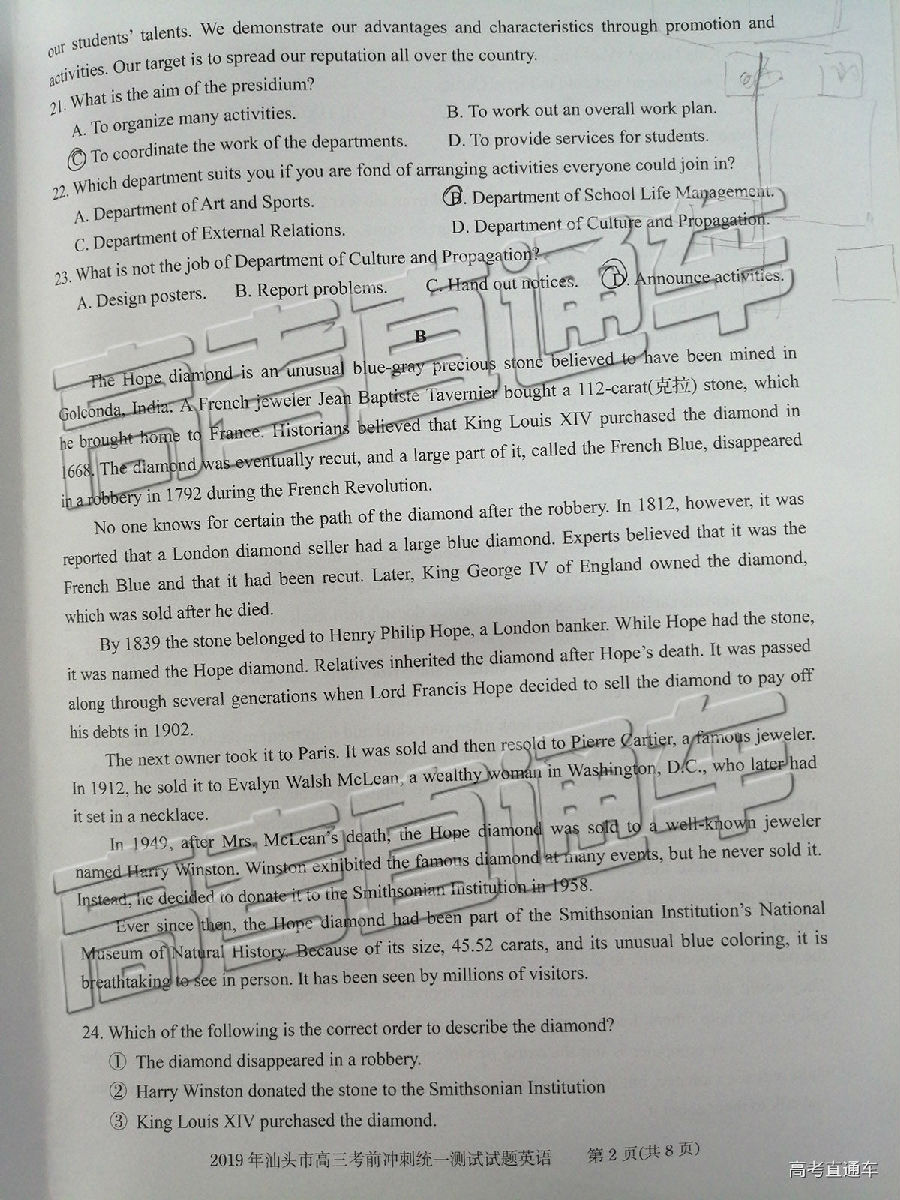 our students' talents. We demonstrate our advantages and characteristics through promotion and
activities. Our target is to spread our reputation all over the country.
21. What is the aim of the presidium?
A. To organize many activities. B. To work out an overall work plan.
C To coordinate the work of the departments. D. To provide services for students.
22. Which department suits you if you are fond of arranging activities everyone could join in?
A. Department of Art and Sports. B. Department of School Life Management.
C. Department of External Relations. D. Department of Culture and Propagation.
23. What is not the job of Department of Culture and Propagation?
A. Design posters. B. Report problems. C. Hand out notices. D. Announce activities.
B
The Hope diamond is an unusual blue-gray precious stone believed to have been mined in
Golconda, India. A French jeweler Jean Baptiste Tavernier bought a 112-carat(克拉) stone, which
he brought home to France. Historians believed that King Louis XIV purchased the diamond in
1668. The diamond was eventually recut, and a large part of it, called the French Blue, disappeared
in a robbery in 1792 during the French Revolution.
No one knows for certain the path of the diamond after the robbery. In 1812, however, it was
reported that a London diamond seller had a large blue diamond. Experts believed that it was the
French Blue and that it had been recut. Later, King George IV of England owned the diamond,
which was sold after he died.
By 1839 the stone belonged to Henry Philip Hope, a London banker. While Hope had the stone,
it was named the Hope diamond. Relatives inherited the diamond after Hope's death. It was passed
along through several generations when Lord Francis Hope decided to sell the diamond to pay off
his debts in 1902.
The next owner took it to Paris. It was sold and then resold to Pierre Cartier, a famous jeweler.
In 1912, he sold it to Evalyn Walsh McLean, a wealthy woman in Washington, D.C., who later had
it set in a necklace.
In 1949, after Mrs. McLean's death, the Hope diamond was sold to a well-known jeweler
named Harry Winston. Winston exhibited the famous diamond at many events, but he never sold it.
Instead, he decided to donate it to the Smithsonian Institution in 1958.
Ever since then, the Hope diamond had been part of the Smithsonian Institution's National
Museum of Natural History. Because of its size, 45.52 carats, and its unusual blue coloring, it is
breathtaking to see in person. It has been seen by millions of visitors.
24. Which of the following is the correct order to describe the diamond?
① The diamond disappeared in a robbery.
② Harry Winston donated the stone to the Smithsonian Institution
③ King Louis XIV purchased the diamond.
2019 年汕头市高三考前冲刺统一测试试题英语 第 2 页(共 8 页)
高考直通车
高考直通车
高考直通车